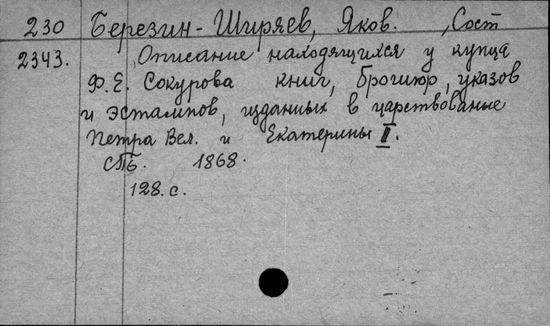 230 Березин-Ширяев, Яков. , Сост
2343. Описание находящихся у купца
Ф.Е. Сокурова книг, брошюр, указов
и эстампов, изданных в царствование
Петра Вел. и Екатерины II.
СПБ. 1868.
128.с.